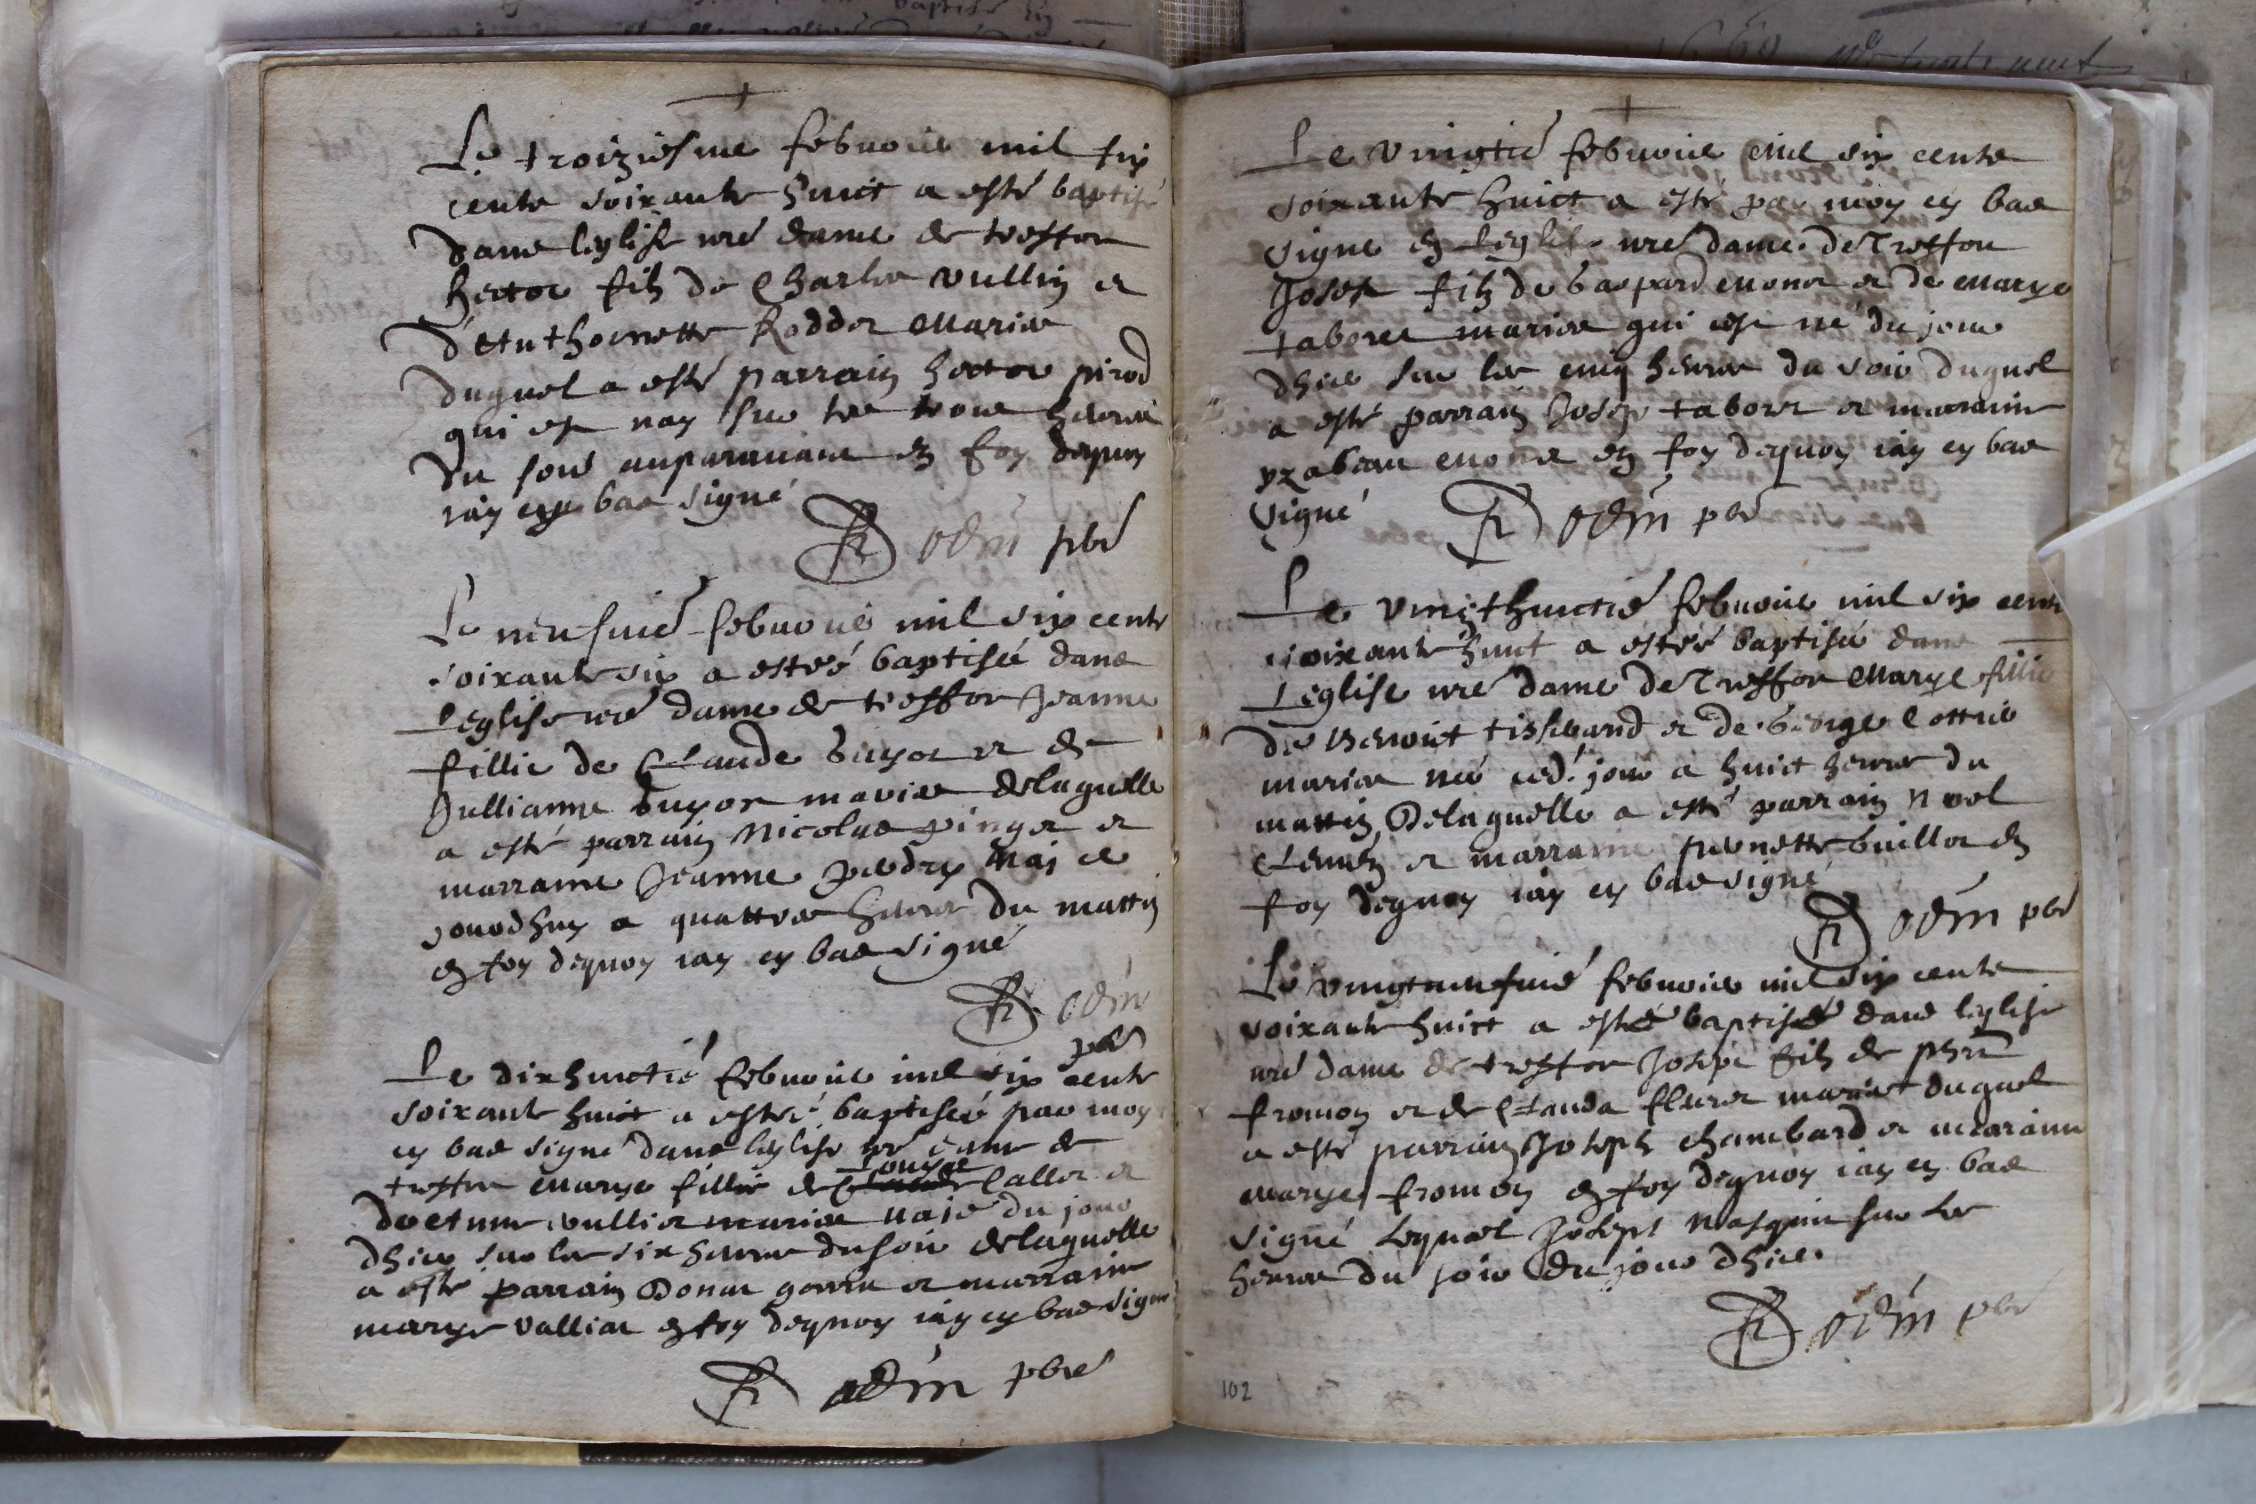 Le troiziesme febvrier mil six
cents soixante huict a esté baptisé
dans leglise nre dame de treffor
hector filz de Charles vullin et
d'etuthoinette Roddet Maries
duquel a esté parrain hector pirod
qui est nay sur les trois heures
du soir auparavant en foy dequoy
iay cy bas signé
odin pbre
Le neufvie febvrier mil six cents
soixante six a esteé baptisée dans
leglise nre dame de treffor Jeanne
fillie de Claude guyot et de
Jullianne buyon maries delaquelle
a esté parrain Nicolas pinget et
marraine Jeanne naj ce
jourdhuy a quattres heures du mattin
en foy dequoy iay cy bas signé
odin
pbre
Le dixhuictie febvrier mil six cents
soixante huict a esteé baptiseé par moy
cy bas signé dans leglise nre dame de
louyse
treffor Marye fillie de Callot et
vullier maries naje du jour
dhier sur les six heures du soir delaquelle
a esté parrain Donat et marraine
marye vulliat en foy dequoy iay cy bas signé
odin pbre
Le vingtie febvrier mil six cents
soixante huict a esté par moy cy bas
signe en leglise nre dame de Treffor
Josep filz de gaspard monet et de marye
taboret maries qui est né du jour
dhier sur les cinq heures du soir duquel
a esté parrain Josep taboret et marraine
yzabeau monet en foy dequoy iay cy bas
signé
odin pbre
Le vingthuictie febvrier mil six cents
soixante huict a esteé baptisée dans
Leglise nre dame de Treffor Marye fillie
de Benoict tisserand et de george Cottier
maries née ced. jour a huict heures du
mattin Delaquelle a esté parrain noel
et marraine pernette buillot en
foy dequoy iay cy bas signé
odin pbre
Le vingtneufvie febvrier mil six cents
soixante huict a esté baptisé dans leglise
nre dame de treffor Josept filz de
fromon et de Clauda fleuret maries duquel
a esté parrain Joseph chambard et maraine
marye fromon en foy dequoy iay cy bas
signé lequel Josept nasquit sur les
heures du soir du jour dhier.
odin pbre
102